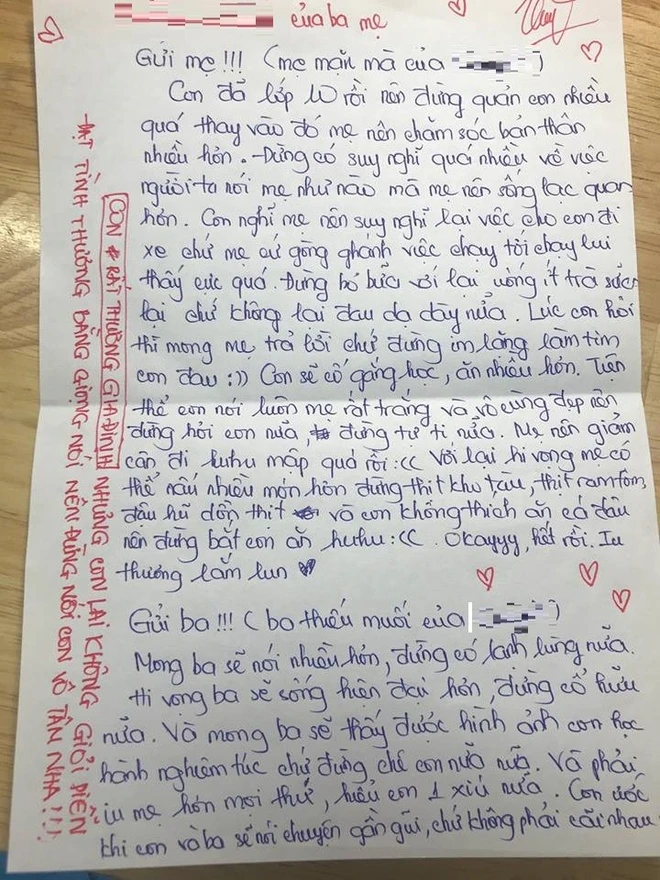 của ba mẹ
Gửi mẹ!!! (mẹ mặn mà của )
Con đã lớp 10 rồi nên đừng quản con nhiều
quá thay vào đó mẹ nên chăm sóc bản thân
nhiều hơn. Đừng có suy nghĩ quá nhiều về việc
người ta nói mẹ như nào mà mẹ nên sống lạc quan
hơn. Con nghĩ mẹ nên suy nghĩ lại việc cho con đi
xe chứ mẹ cứ gồng ghánh việc chạy tới chạy lui
thấy cực quá. Đừng bỏ bữa với lại uống ít trà sữa
lại chứ không lại đau dạ dày nữa. Lúc con hỏi
thì mong mẹ trả lời chứ đừng im lặng làm tim
con đau :)) Con sẽ cố gắng học, ăn nhiều hơn. Tiện
thể con nói luôn mẹ rất trắng và vô cùng đẹp nên
đừng hỏi con nữa, đừng tự ti nữa. Mẹ nên giảm
cân đi huhu mập quá rồi :(( Với lại hi vọng mẹ có
thể nấu nhiều món hơn đừng thịt kho tàu, thịt ram tôm,
đậu hũ dồn thịt và con không thích ăn cá đâu
nên đừng bắt con ăn huhu :(( Okayyy, hết rồi. Iu
thương lắm lun
Gửi ba!!! (ba thiếu muối của )
Mong ba sẽ nói nhiều hơn, đừng có lạnh lùng nữa.
Hi vọng ba sẽ sống hiện đại hơn, đừng cổ hữu
nữa. Và mong ba sẽ thấy được hình ảnh con học
hành nghiêm túc chứ đừng chê con nữa nữa. Và phải
iu mẹ hơn mọi thứ, hiểu con 1 xíu nữa. Con ước
khi con và ba sẽ nói chuyện gần gũi, chứ không phải cãi nhau
CON RẤT THƯƠNG GIA ĐÌNH NHƯNG CON LẠI KHÔNG GIỎI DIỄN
ĐẠT TÌNH THƯƠNG BẰNG GIỌNG NÓI NÊN ĐỪNG NÓI CON VÔ TÂM NHA!!!